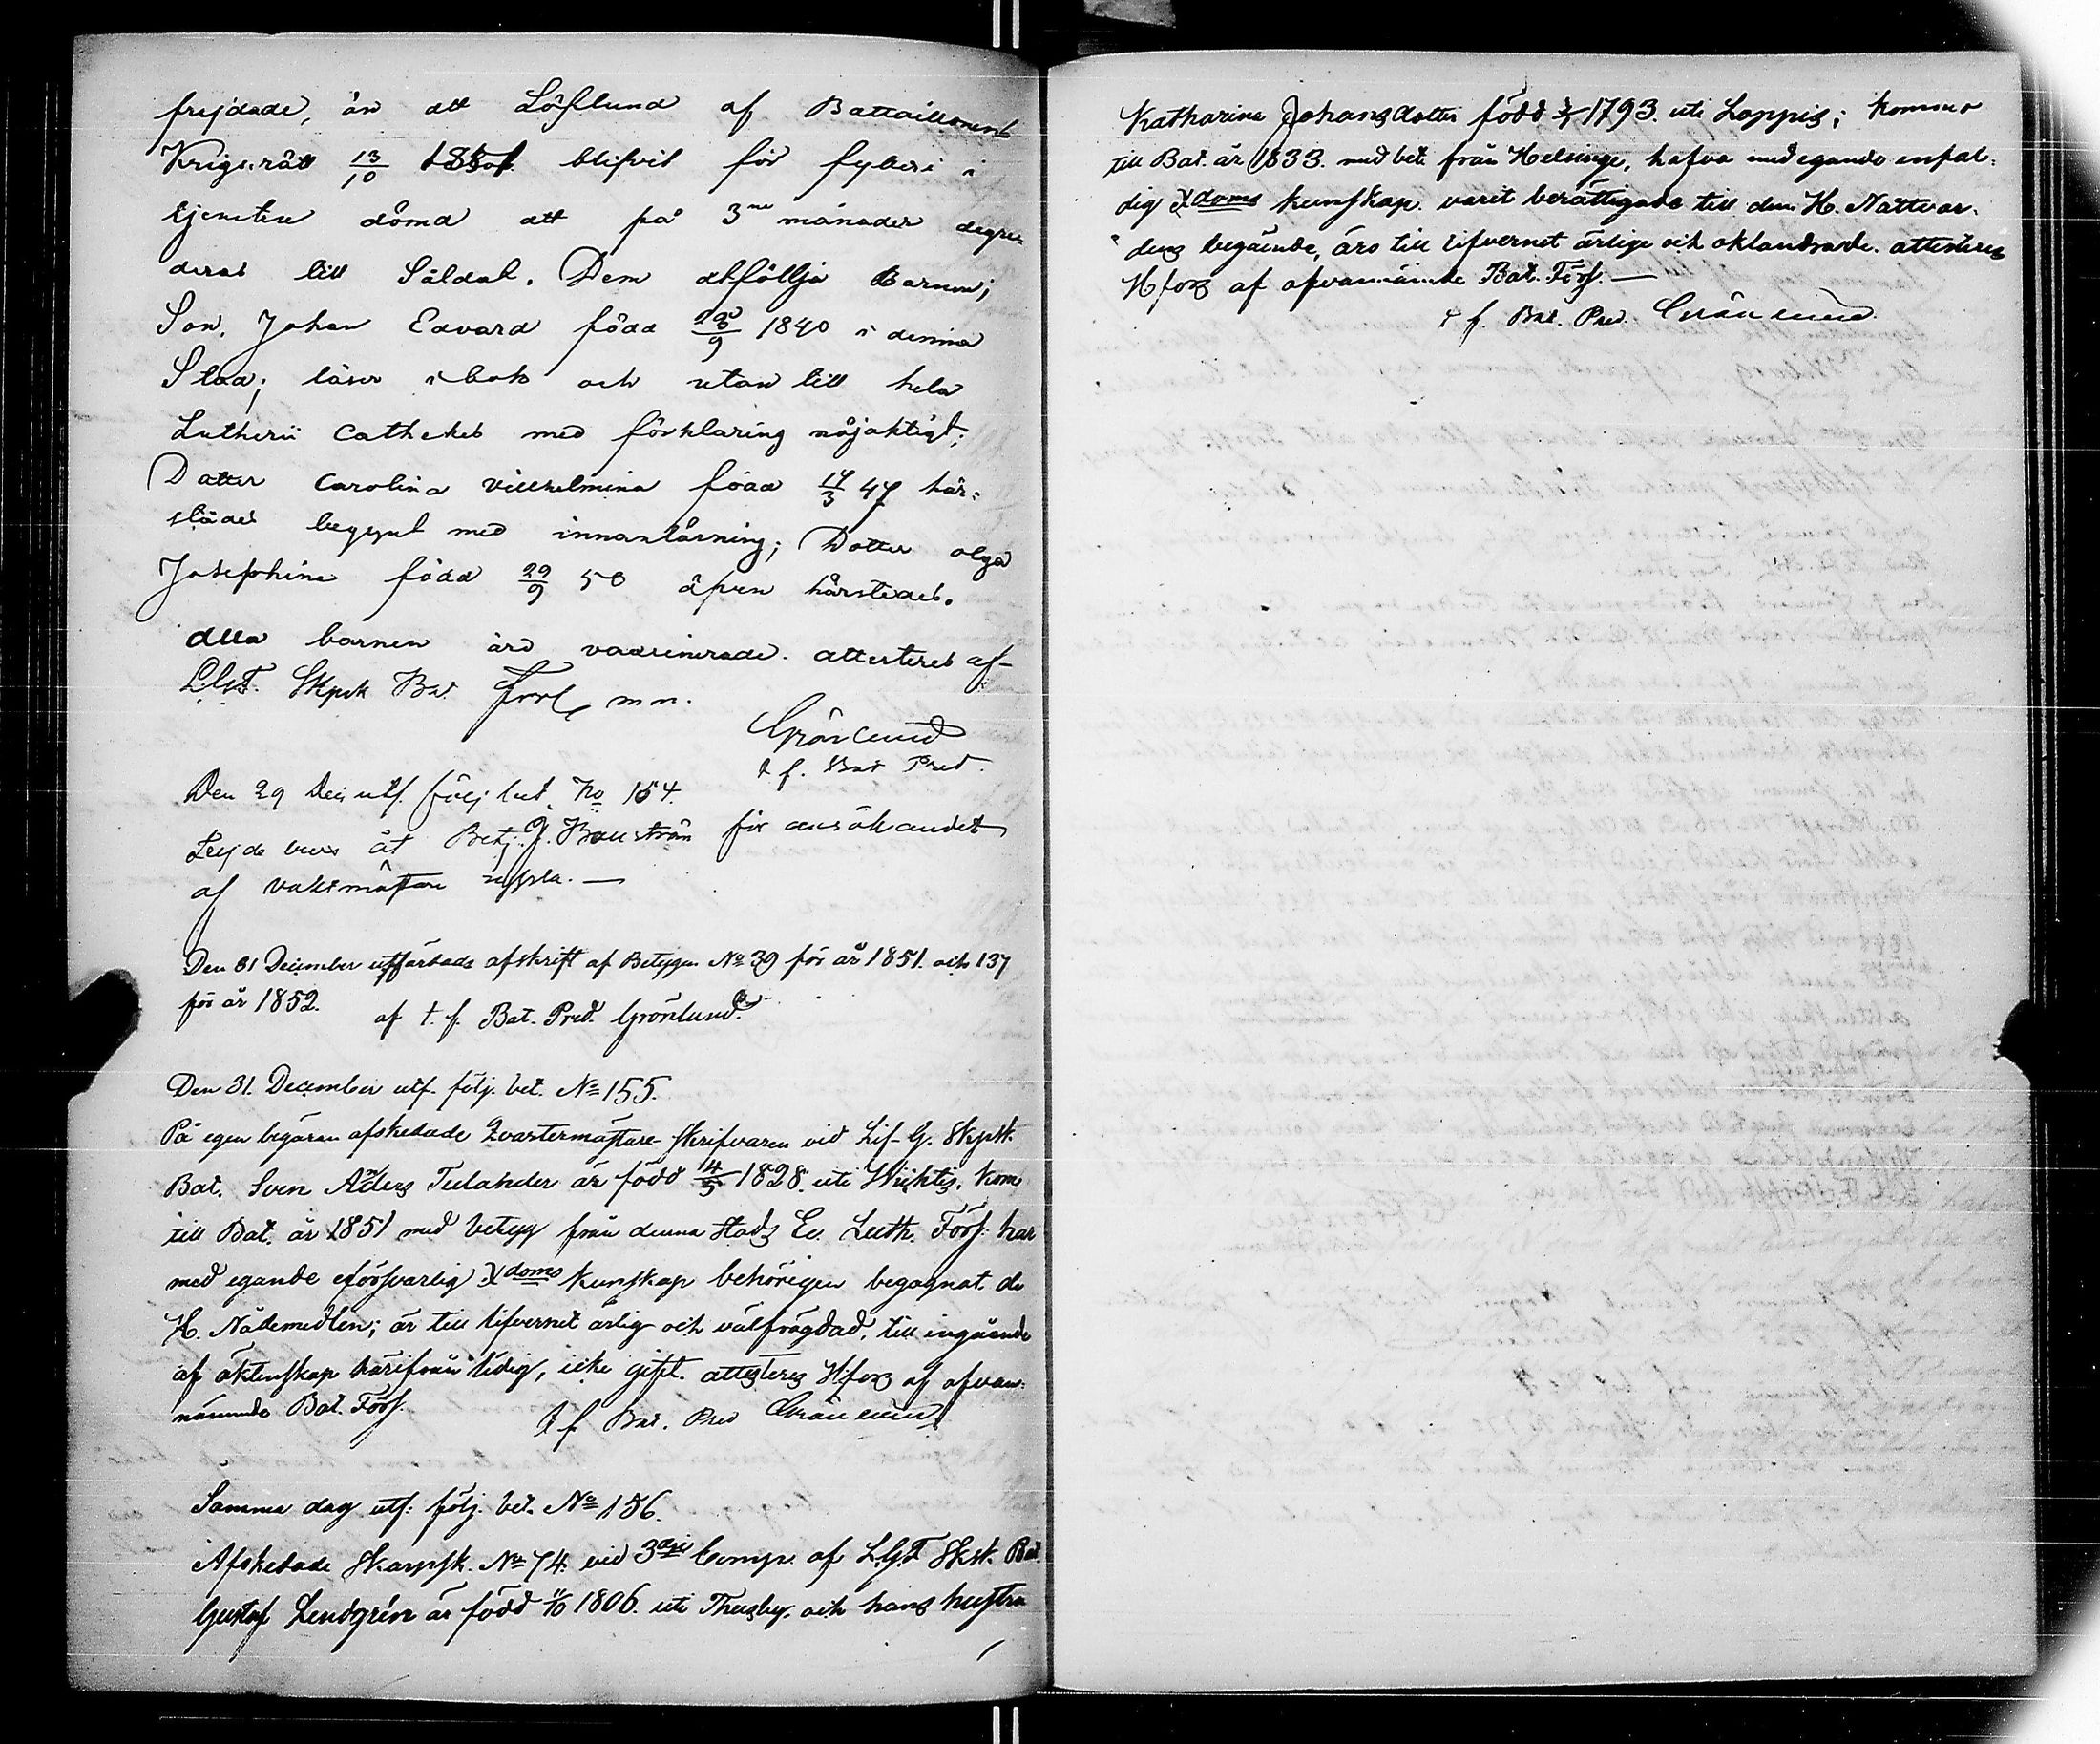 frejdade, än att Löflund af Battaillonens
Krigsrätt 13/10 blifvit för fylleri i
tjensten dömd att på 3ne månader degra-
deras till Såldat. Dem åtföllja Barnen;
Son, Johan Edvard född 1840 i denna
Stad; läser i bok och utan till hela
Lutherii Catheches med förklaring nöjaktigt;
Dotter Carolina Villhelmina född 14/3 47 här-
städes begynt med innanläsning; Dotter Olga
Josephina född 29/9 50 äfven härstedes.
Alla barnen äro vaxinerade. Attesteras af
L.G.F. Skpsk Bat. Förs. m m.
Grönlund
t. f. Bat Pred.
Den 29 Dec utf. följ bet. No 154.
Lejde bevis åt Betj. J. Boström för ansökandet
af vaktmästare syssla. —
Den 31 December utfärdads afskrift af Betygen No 39 för år 1851. och 137
för år 1852.
af t. f. Bat. Pred. Grönlund.
Den 31. December utf. följ. bet. No 155.
På egen begäran afskedade Qvartermästare-skrifvaren vid Lif-G. Skpsk.
Bat. Sven Anders Telander är född 14/5 1828. uti Wichtis. kom
till Bat. år 1851 med betyg från denna stads Ev. Luth. Förs: har
med egande försvarlig Xdoms kunskap behörigen begagnat de
H. Nådemedlen; är till lifvernet ärlig och välfrägdad, till ingående
af äktenskap härifrån ledig, icke gift. attesteras Hfors af ofvan-
nämnde Bat. Förs.
t f. Bat. Pred Grönlund
Samma dag utf. följ. bet. No 156.
Afskedade Skarpsk. No 74. vid 3dje Comp. af L.G.F. Sksk. Bat.
Gustaf Lendgrén är född 1806. uti Thusby, och hans hustru
Katharina Johansdotter född 1793. uti Loppis; komma
till Bat. år 1833. med bet. från Helsinge, hafva med egande enfal-
dig Xdoms kunskap varit berättigade till den H. Nattvar-
dens begående, äro till lifvernet ärliga och oklandrade. attesteras
Hfors af ofvannämnde Bat. Förs. —
t f. Bat. Pred. Grönlund.